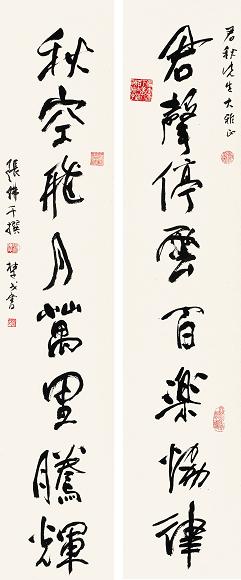 君秋先生大雅正
君聲停雲百樂協律
秋空飛月萬里騰輝
張佛千撰 楚戈書